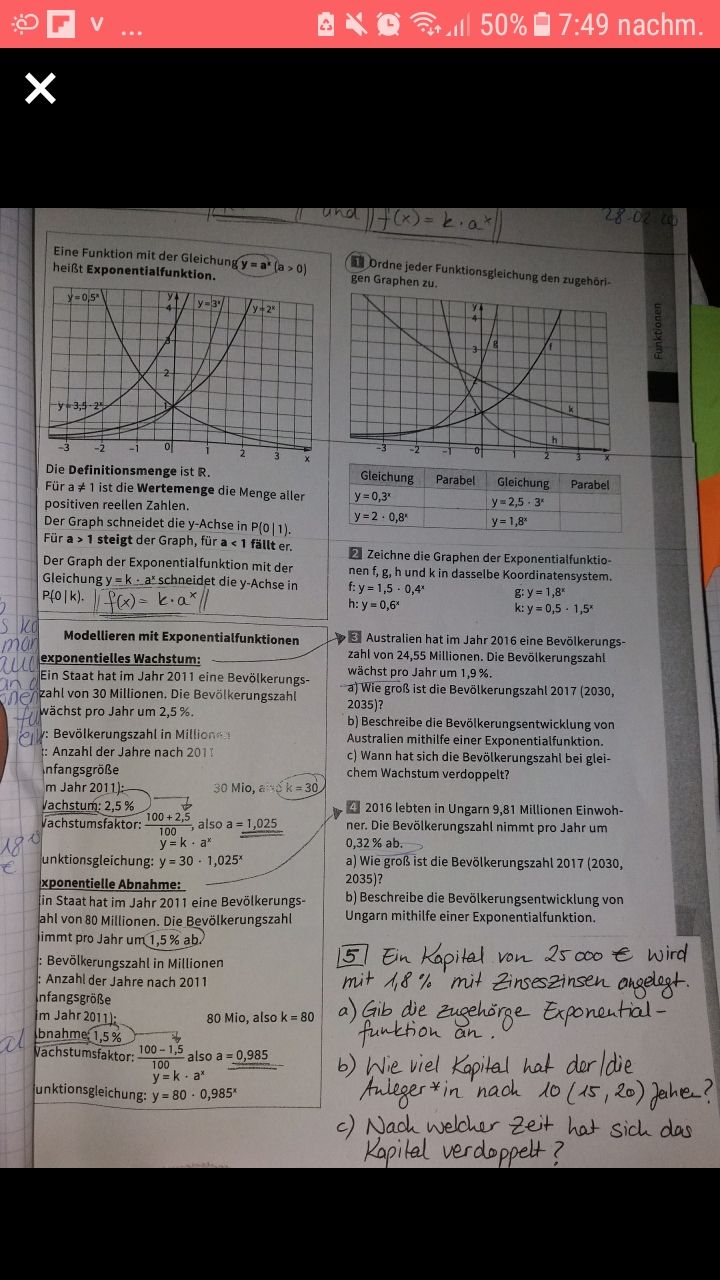 50% 7:49 nachm.
und f(x) = k · aˣ
28.02.20
Eine Funktion mit der Gleichung y = aˣ (a > 0)
heißt Exponentialfunktion.
y=0,5ˣ
y=3ˣ
y=2ˣ
y=3,5·2ˣ
Die Definitionsmenge ist ℝ.
Für a ≠ 1 ist die Wertemenge die Menge aller
positiven reellen Zahlen.
Der Graph schneidet die y-Achse in P(0|1).
Für a > 1 steigt der Graph, für a < 1 fällt er.
Der Graph der Exponentialfunktion mit der
Gleichung y = k · aˣ schneidet die y-Achse in
P(0|k). f(x) = k·aˣ
Modellieren mit Exponentialfunktionen
exponentielles Wachstum:
Ein Staat hat im Jahr 2011 eine Bevölkerungs-
zahl von 30 Millionen. Die Bevölkerungszahl
wächst pro Jahr um 2,5 %.
: Bevölkerungszahl in Millionen
: Anzahl der Jahre nach 2011
nfangsgröße
m Jahr 2011): 30 Mio, also k = 30
Wachstum: 2,5 %
Wachstumsfaktor: (100 + 2,5)/100, also a = 1,025
y = k · aˣ
unktionsgleichung: y = 30 · 1,025ˣ
xponentielle Abnahme:
in Staat hat im Jahr 2011 eine Bevölkerungs-
ahl von 80 Millionen. Die Bevölkerungszahl
immt pro Jahr um 1,5 % ab.
: Bevölkerungszahl in Millionen
: Anzahl der Jahre nach 2011
nfangsgröße
im Jahr 2011): 80 Mio, also k = 80
Abnahme: 1,5 %
Wachstumsfaktor: (100 – 1,5)/100 also a = 0,985
y = k · aˣ
unktionsgleichung: y = 80 · 0,985ˣ
1 Ordne jeder Funktionsgleichung den zugehöri-
gen Graphen zu.
g
f
k
h
Gleichung Parabel Gleichung Parabel
y = 0,3ˣ y = 2,5 · 3ˣ
y = 2 · 0,8ˣ y = 1,8ˣ
2 Zeichne die Graphen der Exponentialfunktio-
nen f, g, h und k in dasselbe Koordinatensystem.
f: y = 1,5 · 0,4ˣ g: y = 1,8ˣ
h: y = 0,6ˣ k: y = 0,5 · 1,5ˣ
3 Australien hat im Jahr 2016 eine Bevölkerungs-
zahl von 24,55 Millionen. Die Bevölkerungszahl
wächst pro Jahr um 1,9 %.
a) Wie groß ist die Bevölkerungszahl 2017 (2030,
2035)?
b) Beschreibe die Bevölkerungsentwicklung von
Australien mithilfe einer Exponentialfunktion.
c) Wann hat sich die Bevölkerungszahl bei glei-
chem Wachstum verdoppelt?
4 2016 lebten in Ungarn 9,81 Millionen Einwoh-
ner. Die Bevölkerungszahl nimmt pro Jahr um
0,32 % ab.
a) Wie groß ist die Bevölkerungszahl 2017 (2030,
2035)?
b) Beschreibe die Bevölkerungsentwicklung von
Ungarn mithilfe einer Exponentialfunktion.
5 Ein Kapital von 25 000 € wird
mit 1,8 % mit Zinseszinsen angelegt.
a) Gib die zugehörge Exponential-
funktion an.
b) Wie viel Kapital hat der/die
Anleger*in nach 10 (15, 20) Jahren?
c) Nach welcher Zeit hat sich das
Kapital verdoppelt?
Funktionen